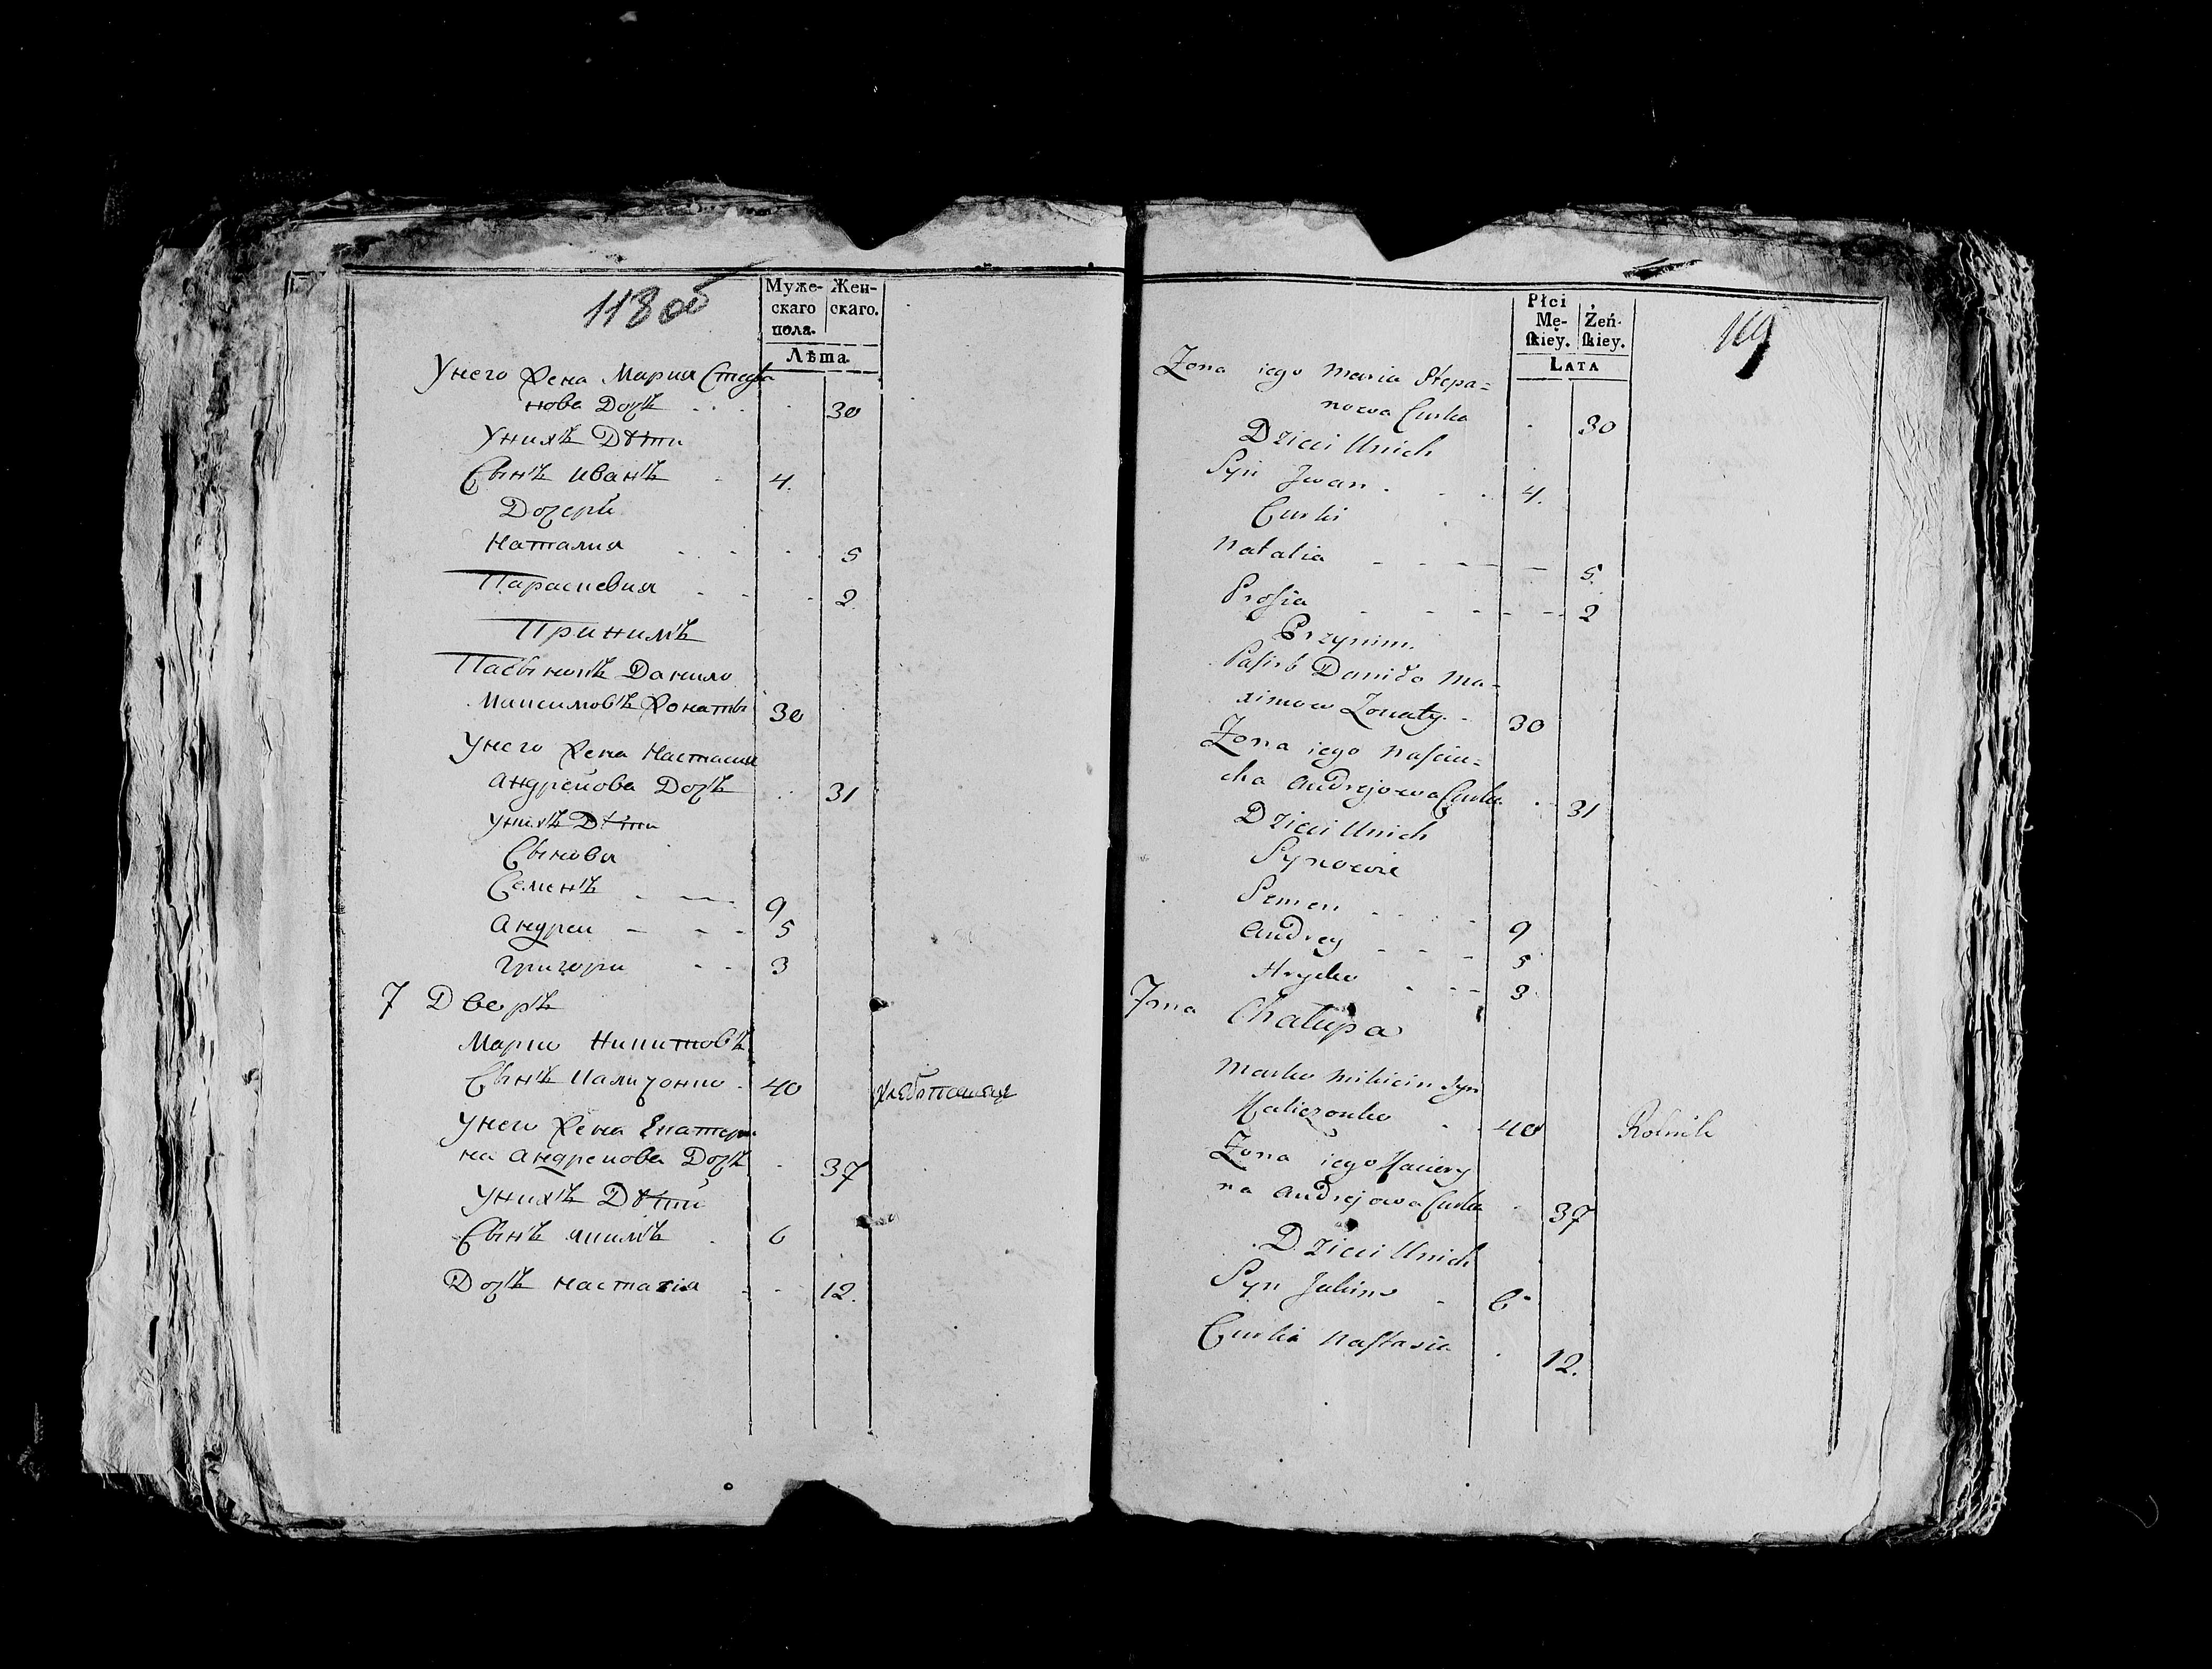 118 об
Муже-
скаго
пола.
Жен-
скаго.
Лѣта.
Унего Жена Мария Степа
нова Дочь 30
Унихъ Дѣти
Сынъ Иванъ 4.
Дочери
Наталия 5
Параскевия 2
Принимъ
Пасынокъ Данило
Максимовъ Жонаты 30
Унего Жена Настасия
Андреиова Дочь 31
Унихъ Дѣти
Сыновя
Семенъ 9
Андреи 5
Григори 3
7 Дворъ
Марко Никитовъ
Сынъ Каличонко 40 Хлебопашецъ
Унего Жена Екатери
на Андреиова Дочь 37
Унихъ Дѣти
Сынъ Якимъ 6
Дочь Настасія 12.
119
Płci
Mę-
ſkiey.
Żeń-
ſkiey.
LATA
Zona iego Maria Stepa=
nowa Curka 30
Dzieci Unich
Syn Jwan 4.
Curki
Natalia 5.
Prosia 2
Przynim.
Pasirb Daniło Ma-
ximow Zonaty 30
Zona iego Nasciu=
cha Andrejowa Curka 31
Dzieci Unich
Synowie
Semen 9
Andrey 5
Hryćko 3
7ma Chałupa
Marko Mikicin Syn
Kaliczonko 40 Rolnik
Zona iego Katery
na Andrejowa Curka 37
Dzieci Unich
Syn Jakim 6
Curka Nastasia 12.